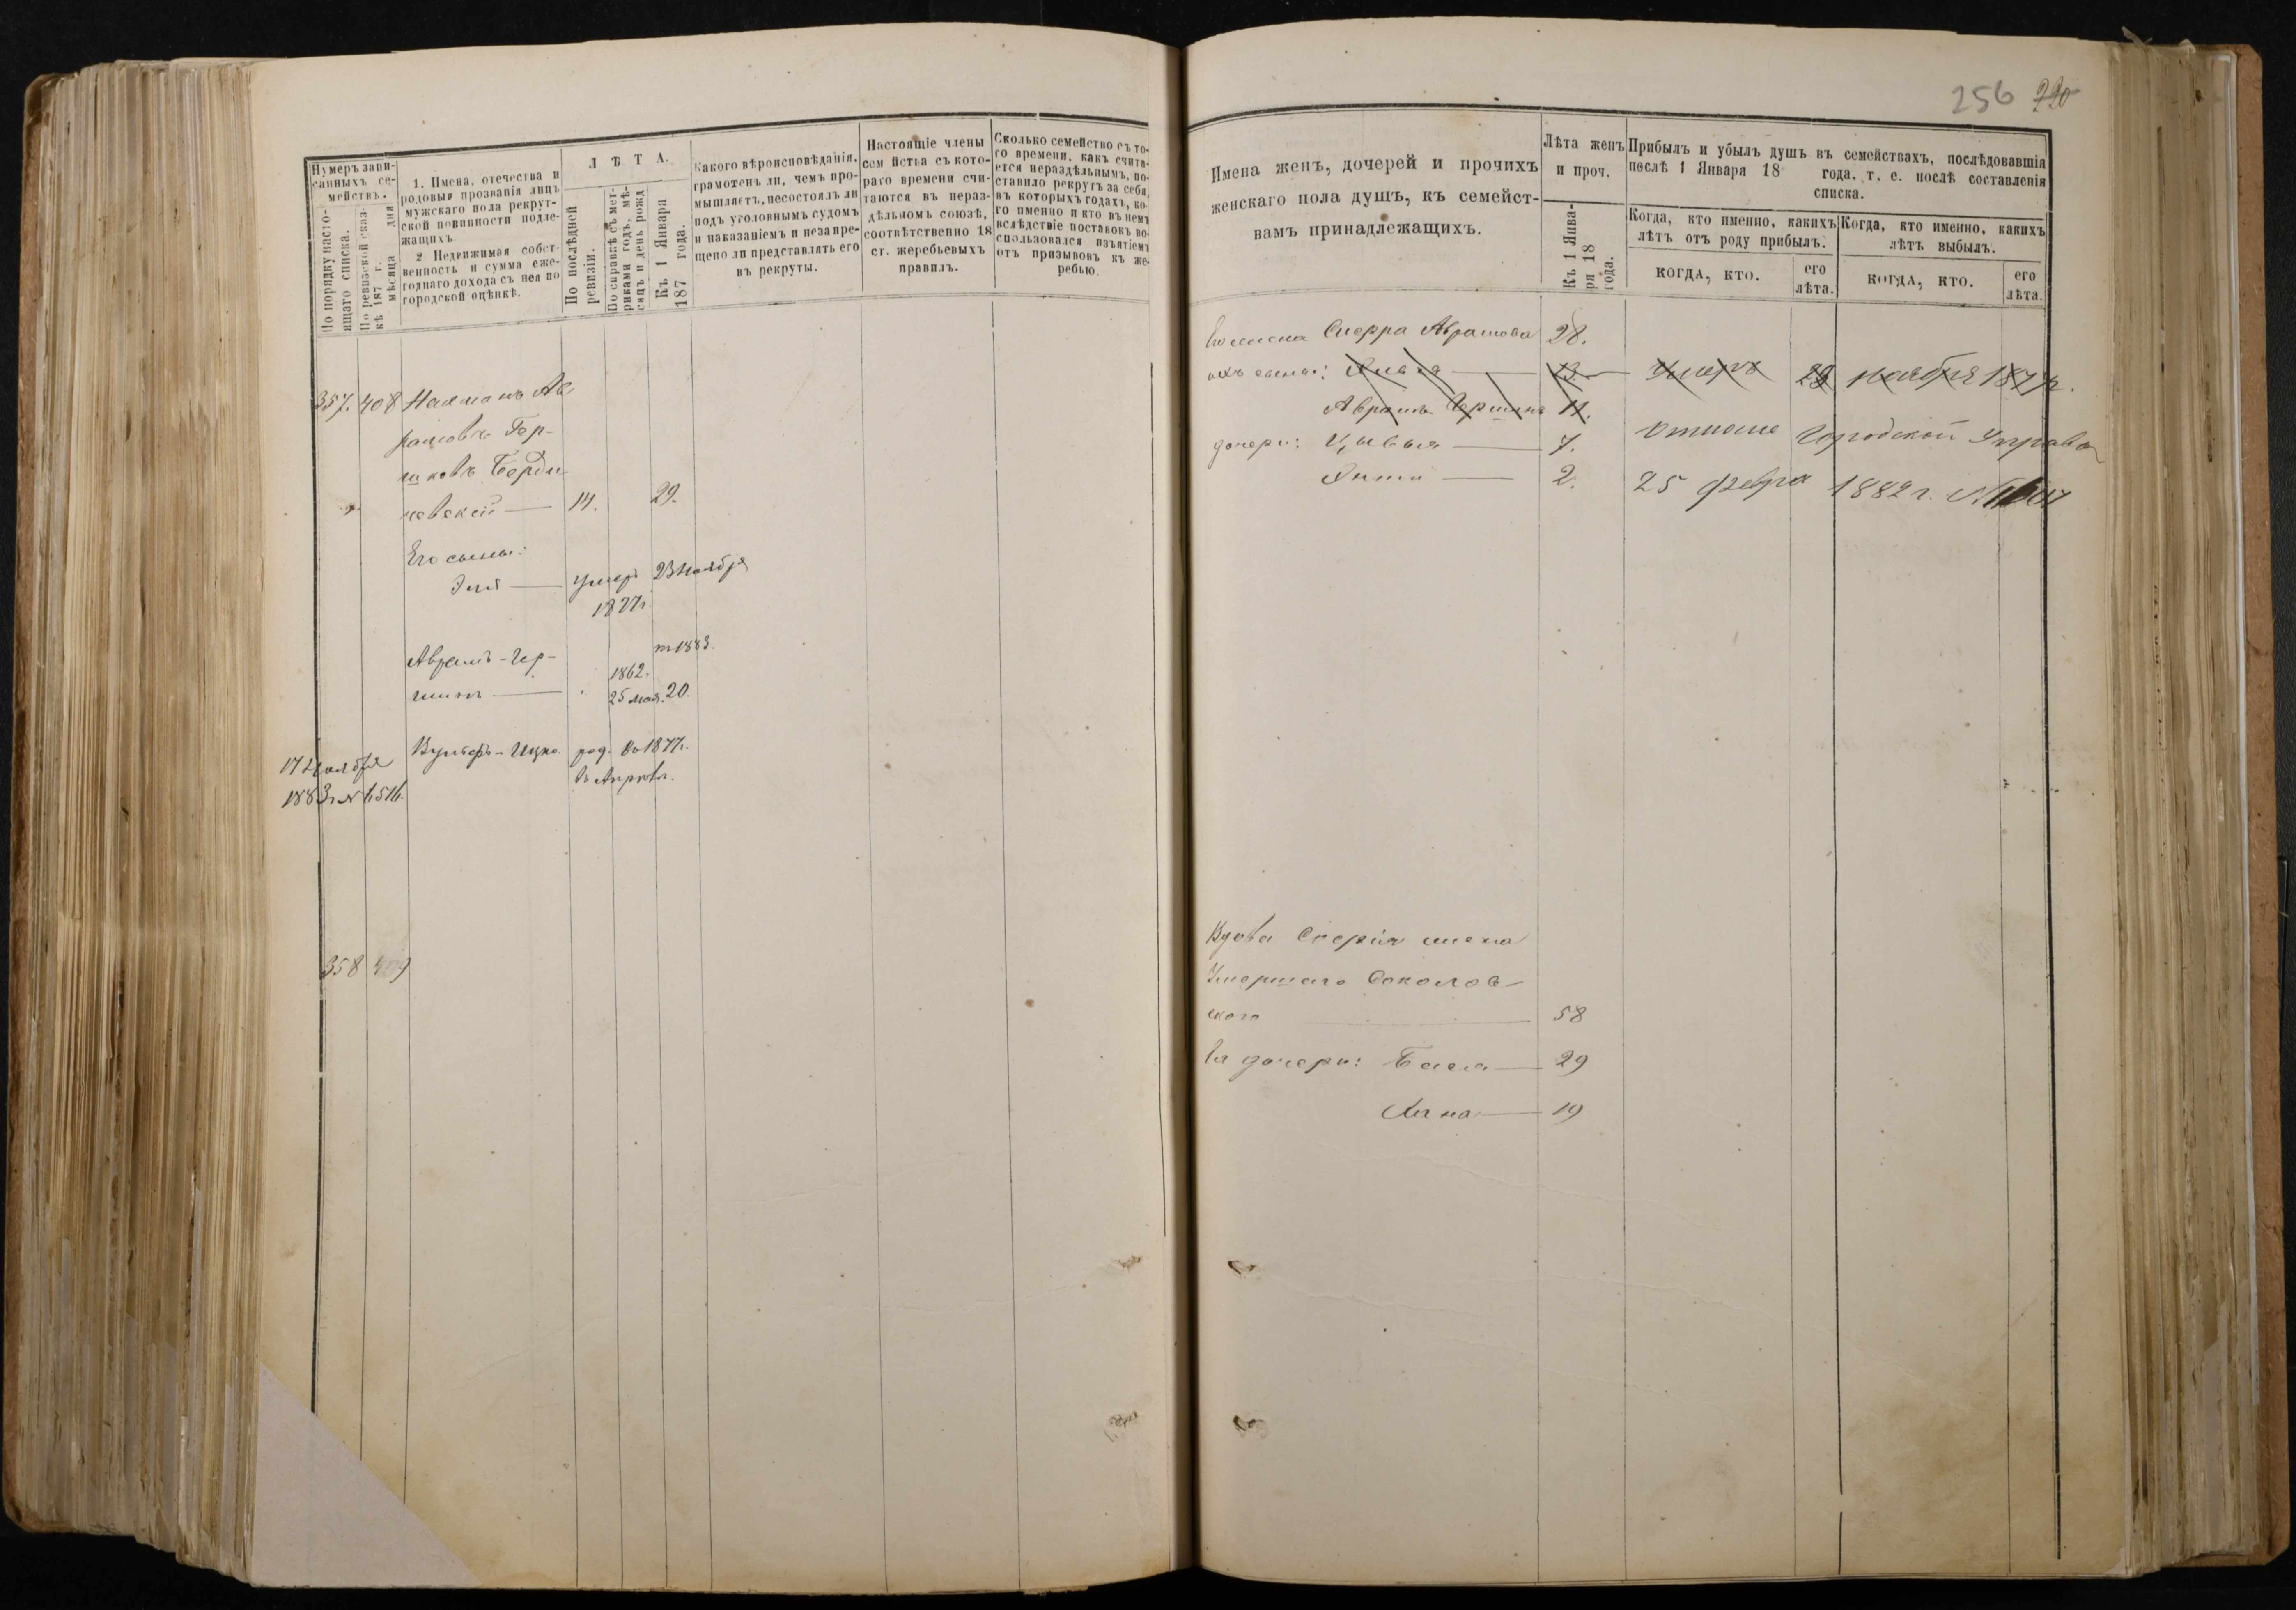 Нумеръ запи-
санныхъ се-
мействъ.
По порядку насто-
ящаго списка.
По ревизской сказ-
кѣ 187 г.
мѣсяца дня
1. Имена, отечества и
родовыя прозванія лицъ
мужскаго пола рекрут-
ской повинности подле-
жащихъ
2 Недвижимая собст-
венность и сумма еже-
годнаго дохода съ нея по
городской оцѣнкѣ.
ЛѢТА.
По послѣдней
ревизіи.
По справкѣ съ мет-
риками годъ, мѣ-
сяцъ и день рожд
Къ 1 Января
187 года.
Какого вѣроисповѣданія,
грамотенъ ли, чемъ про-
мышляетъ, несостоялъ ли
подъ уголовнымъ судомъ
и наказаніемъ и незапре-
щено ли представлять его
въ рекруты.
Настоящіе члены
сем йства съ кото-
раго времени счи-
таются въ нераз-
дѣльномъ союзѣ,
соотвѣтственно 18
ст. жеребьевыхъ
правилъ.
Сколько семейство съ то-
го времени, какъ счита-
ется нераздѣльнымъ, по-
ставило рекрутъ за себя,
въ которыхъ годахъ, ко-
го именно и кто въ немъ
вслѣдствіе поставокъ во-
спользовался изъятіемъ
отъ призывовъ къ же-
ребью.
357. 408 Нахманъ Ав
рамовъ Гер-
шковъ Берди
чевскій 14. 29.
Его сыны:
Эля умеръ 23 Ноября
1877г.
Аврамъ-Гер-
шкъ 1862. 25 мая. 20.
1883.
Вульфъ-Ицко род. въ 1877г.
17 Ноября
1883г №
358 409
256
Имена женъ, дочерей и прочихъ
женскаго пола душъ, къ семейст-
вамъ принадлежащихъ.
Лѣта женъ
и проч.
Къ 1 Янва-
ря 18
года.
Прибылъ и убылъ душъ въ семействахъ, послѣдовавшія
послѣ 1 Января 18 года. т. е. послѣ составленія
списка.
Когда, кто именно, какихъ
лѣтъ отъ роду прибылъ.
Когда, кто именно, какихъ
лѣтъ выбылъ.
КОГДА, КТО.
его
лѣта.
КОГДА, КТО.
его
лѣта.
Его жена Сперра Абрамова 28.
ихъ сыны: 13. Умеръ 23 ноября 1877г.
Аврамъ Гершкъ 11.
дочери: Цывья 7. Отноше Городской Управы
Энта 2. 25 февра 1882 г. №
Вдова жена
Умершаго Соколов
ского 58
Ея дочери: Бася 29
Хана 19